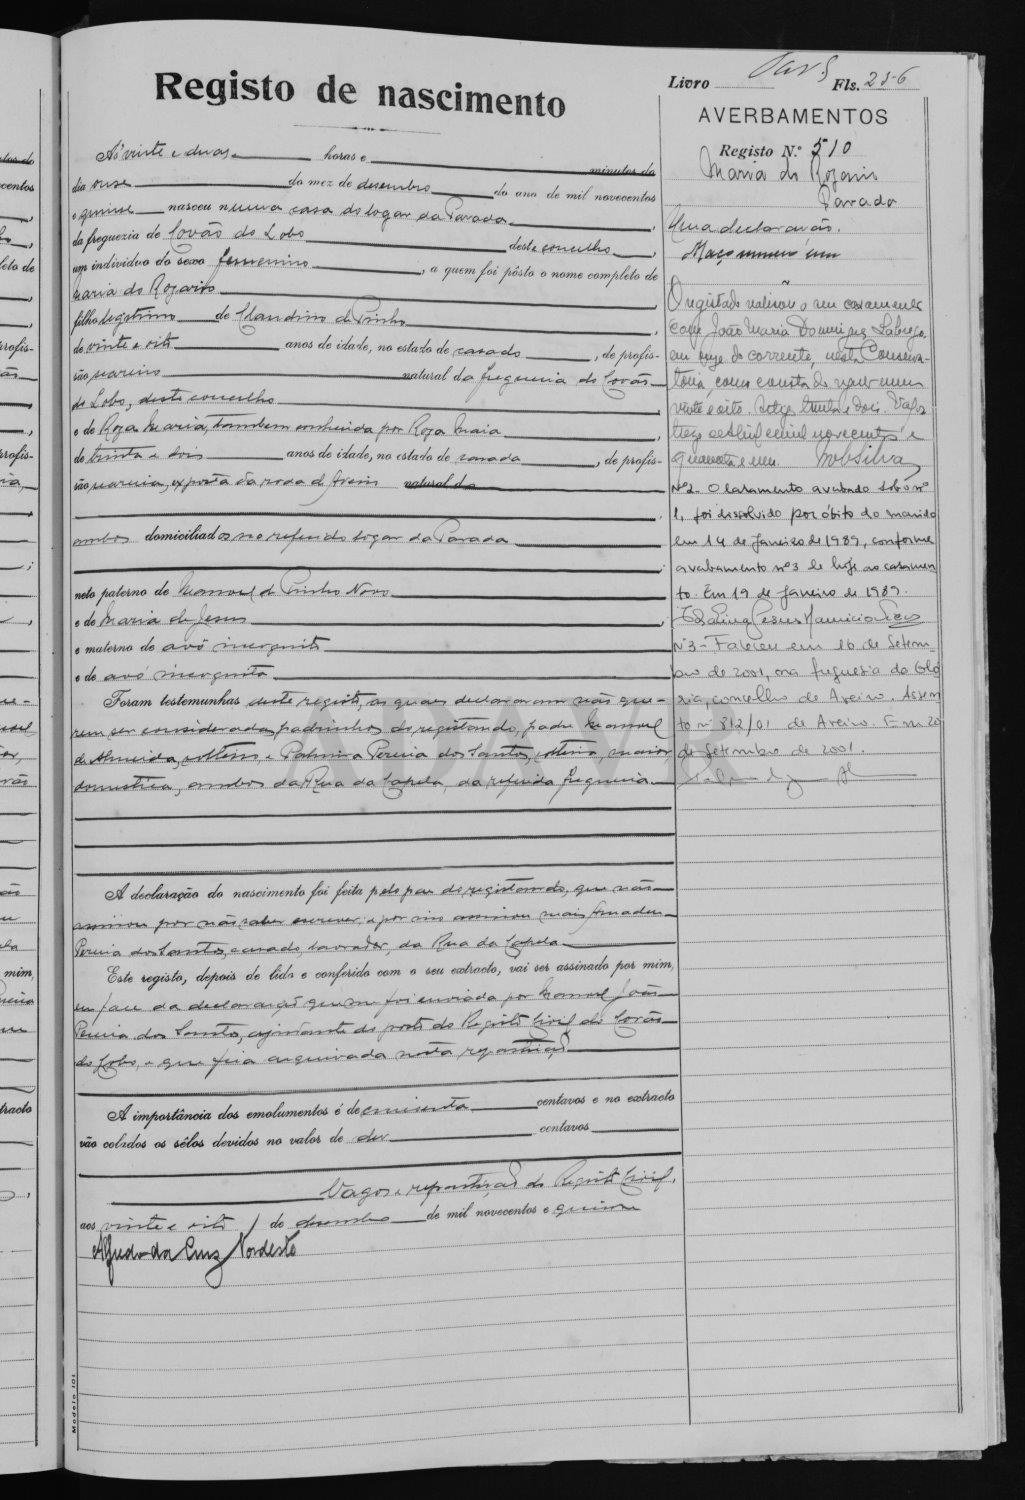 Livro Fls. 256
Registo de nascimento
Ás vinte e duas horas e minutos do
dia onse do mez de desembro do ano de mil novecentos
e quinse nasceu numa casa do logar da Parada,
da freguezia de Covão do Lobo deste concelho,
um individuo do sexo femenino, a quem foi pôsto o nome completo de
Maria do Rozario,
filho legitimo de Claudino de Pinho,
de vinte e oito anos de idade, no estado de casado, de profis-
são natural da freguezia do Covão
do Lobo, deste concelho,
e de Roza Maria, tambem conhecida por Roza Maia,
de trinta e dois anos de idade, no estado de casada, de profis-
são exposta da roda d'Aveiro natural da
ambos domiciliados no referido logar da Parada
neto paterno de Manoel de Pinho Novo
e de Maria de Jesus,
e materno de avô incognito
e de avó incognita
Foram testemunhas deste registo, as quaes declararam não que-
rem ser consideradas padrinhos do registando, padre Manoel
de Almeida, solteiro e Palmira Pereira dos Santos, solteira, maior,
domestica, ambos da Rua da Capela, da referida freguezia
A declaração do nascimento foi feita pelo pae do registando, que não
assinou por não saber escrever, e por isso assinou mais Amadeu
Pereira dos Santos, casado, lavrador, da Rua da Capela
Este registo, depois de lido e conferido com o seu extracto, vai ser assinado por mim,
em face da declaração que me foi enviada por Manoel João
Pereira dos Santos, ajudante do posto do Registo Civil do Covão
do Lobo, e que fica arquivada nesta repartição
A importância dos emolumentos é de cincoenta centavos e no extracto
vão colados os sêlos devidos no valor de dez centavos
Vagos e repartição do Registo Civil,
aos vinte e oito de desembro de mil novecentos e quinse
Alfredo da Cruz Nordeste
AVERBAMENTOS
Registo N.º 510
Maria do Rozario
Parada
Uma declaração.
Maço numero um
O registado realisou o seu casamento
com João Maria Domingues
em onze do corrente, nesta Conserva-
toria, como consta do
vinte e oito. trinta e dois. Vagos
treze de mil novecentos e
quarenta e um. Silva
Nº2 - O casamento averbado sob o nº
1, foi dissolvido por óbito do marido
em 14 de Janeiro de 1989, conforme
averbamento nº3 de hoje ao casamen
to. Em 19 de Janeiro de 1989.
Nº3 - Faleceu em 16 de Setem-
bro de 2001, na freguesia da Gló
ria, concelho de Aveiro. Assen
to nº 812/01 de Aveiro. Em 20
de Setembro de 2001.
Modelo 101